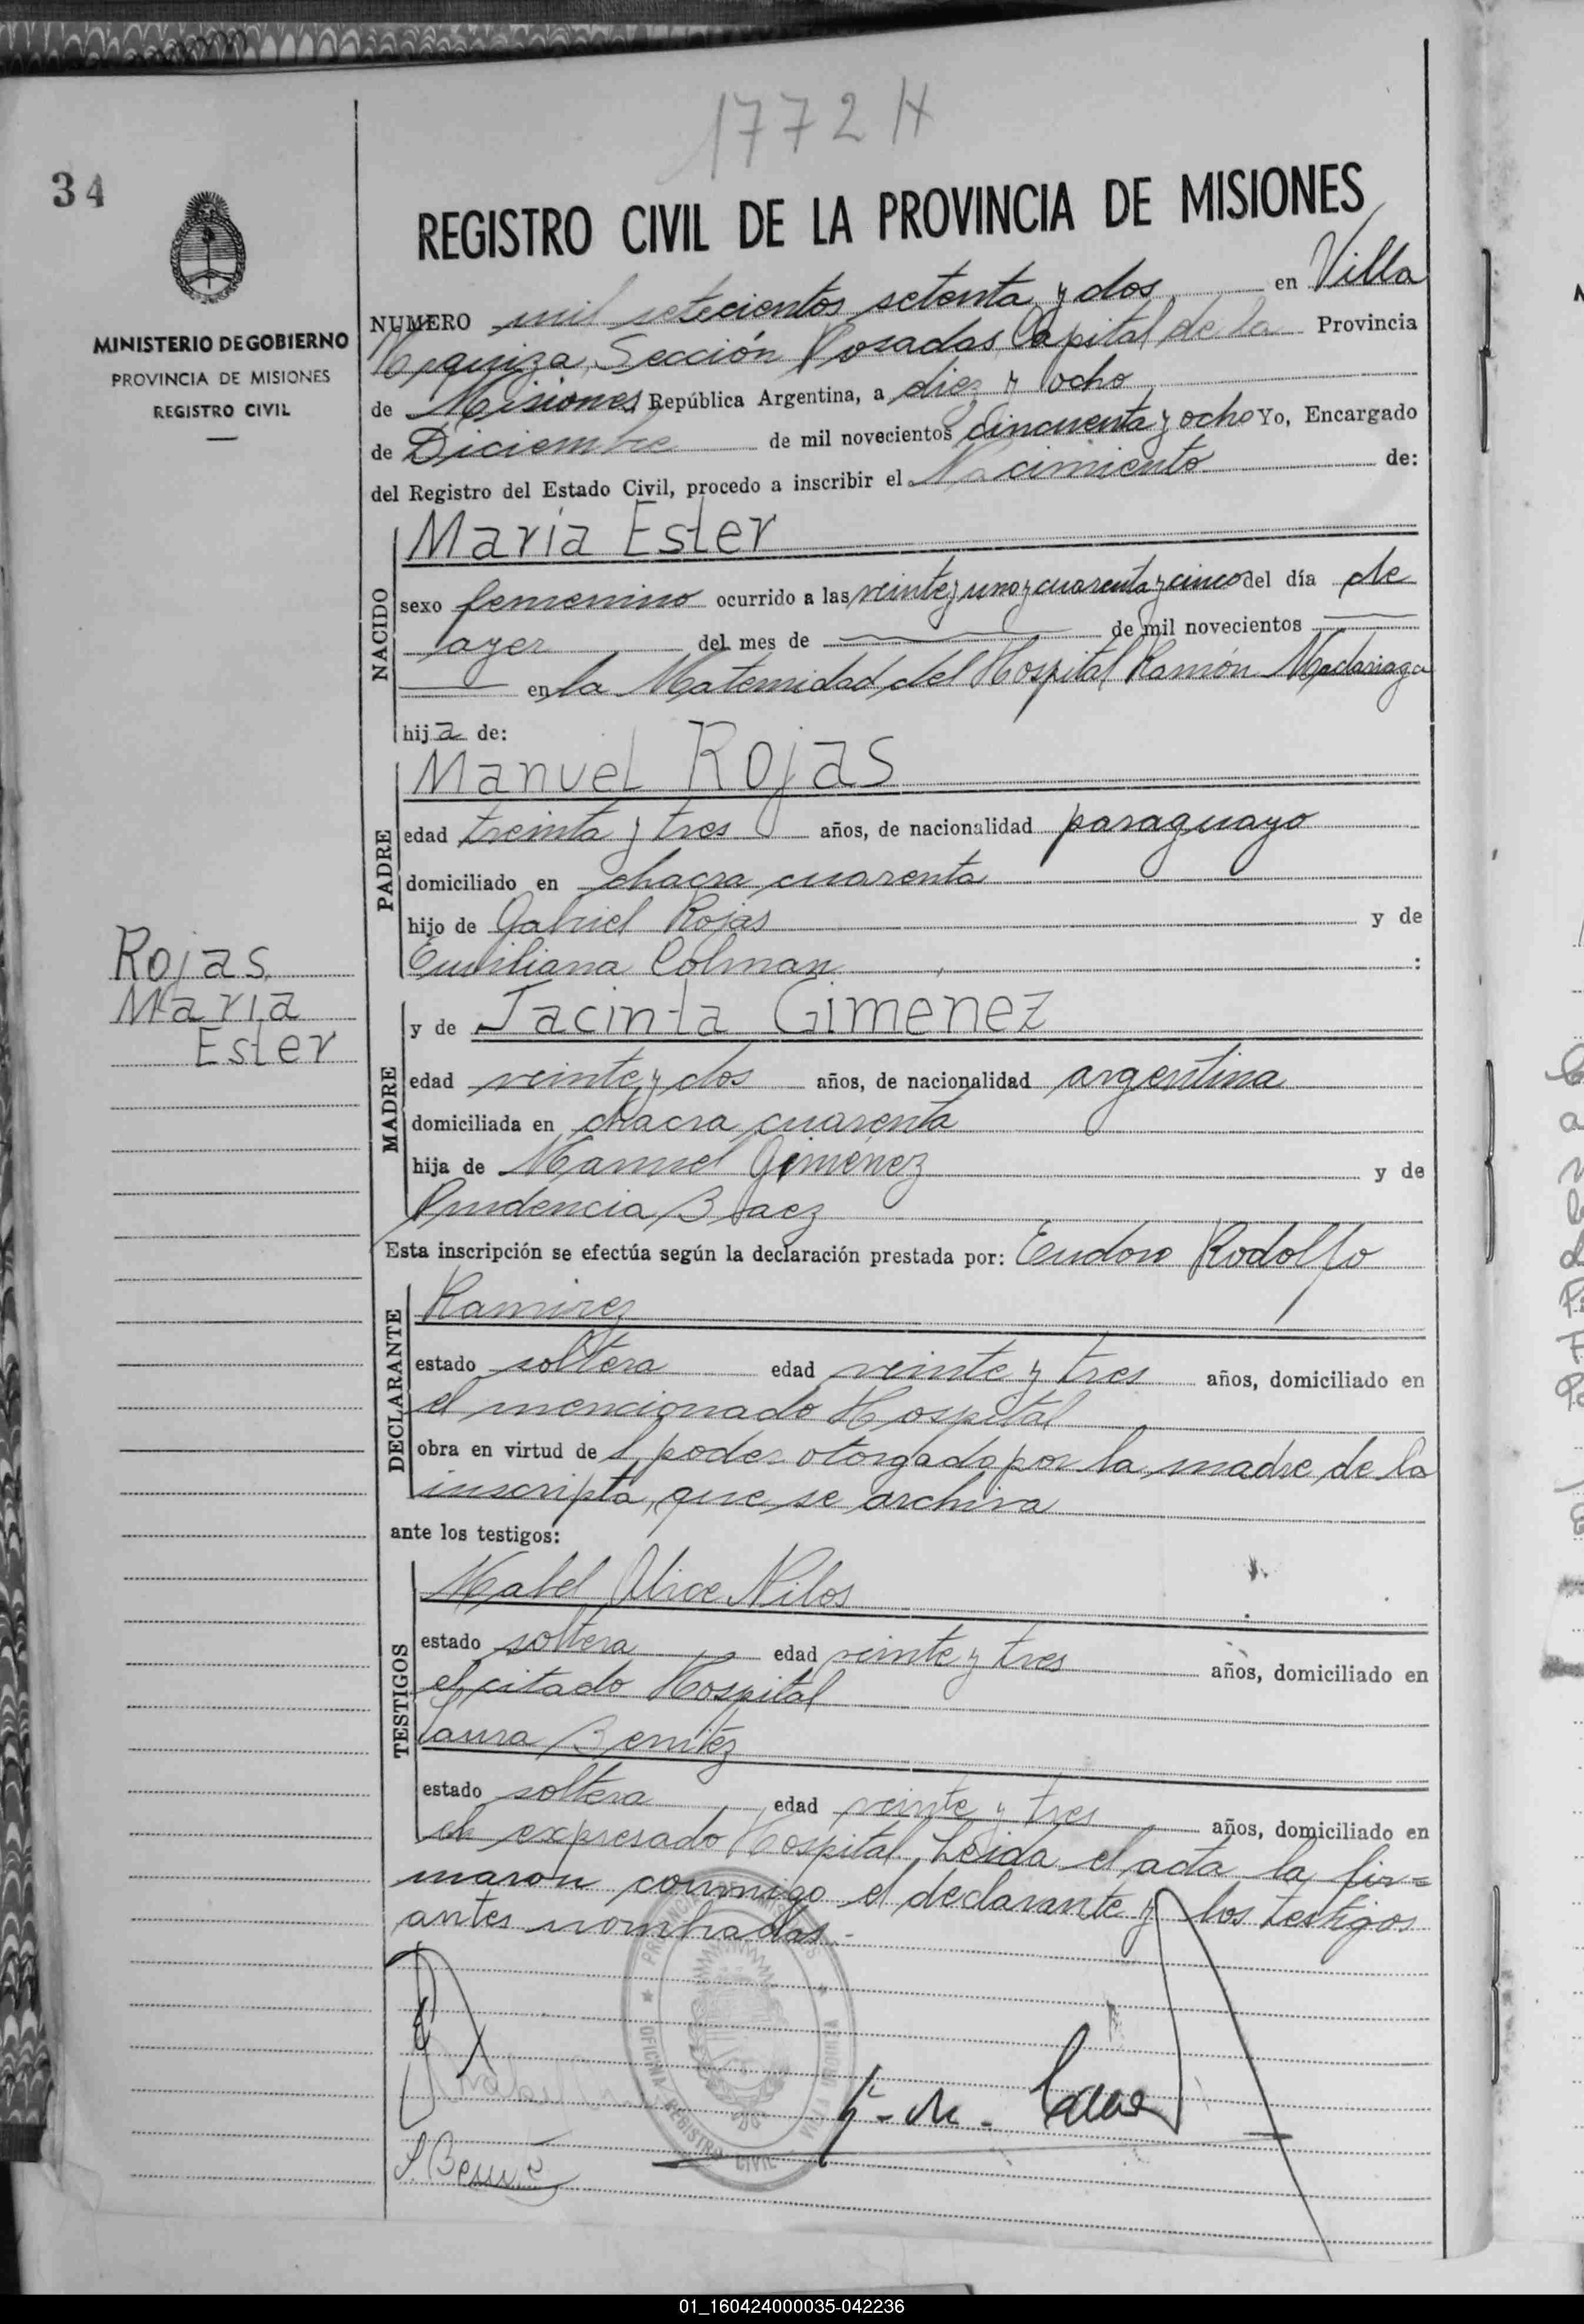 1772 H
34
REGISTRO CIVIL DE LA PROVINCIA DE MISIONES
MINISTERIO DE GOBIERNO
PROVINCIA DE MISIONES
REGISTRO CIVIL
NUMERO mil setecientos setenta y dos en Villa
Urquiza, Sección Posadas, Capital de la Provincia
de Misiones República Argentina, a diez y ocho
de Diciembre de mil novecientos cincuenta y ocho Yo, Encargado
del Registro del Estado Civil, procedo a inscribir el Nacimiento de:
NACIDO
Maria Ester
sexo femenino ocurrido a las veinte y uno y cuarenta y cinco del día de
ayer del mes de de mil novecientos
en la Maternidad del Hospital Ramón Madariaga
hija de:
PADRE
Manuel Rojas
edad treinta y tres años, de nacionalidad paraguayo
domiciliado en chacra cuarenta
hijo de Gabriel Rojas y de
Emiliana Colman :
Rojas
Maria
Ester
MADRE
y de Jacinta Gimenez
edad veinte y dos años, de nacionalidad argentina
domiciliada en chacra cuarenta
hija de Manuel Gimenez y de
Prudencia Baez
Esta inscripción se efectúa según la declaración prestada por: Eudoro Rodolfo
DECLARANTE
Ramirez
estado soltera edad veinte y tres años, domiciliado en
el mencionado Hospital
obra en virtud de l poder otorgado por la madre de la
inscripta, que se archiva
ante los testigos:
TESTIGOS
Mabel Alice Nilos
estado soltera edad veinte y tres años, domiciliado en
el citado Hospital
Laura Benitez
estado soltera edad veinte y tres años, domiciliado en
el expresado Hospital. Leida el acta la fir=
maron conmigo el declarante y los testigos
antes nombrados.-
PROVINCIA DE MISIONES
OFICINA REGISTRO CIVIL VILLA URQUIZA
01_160424000035-042236